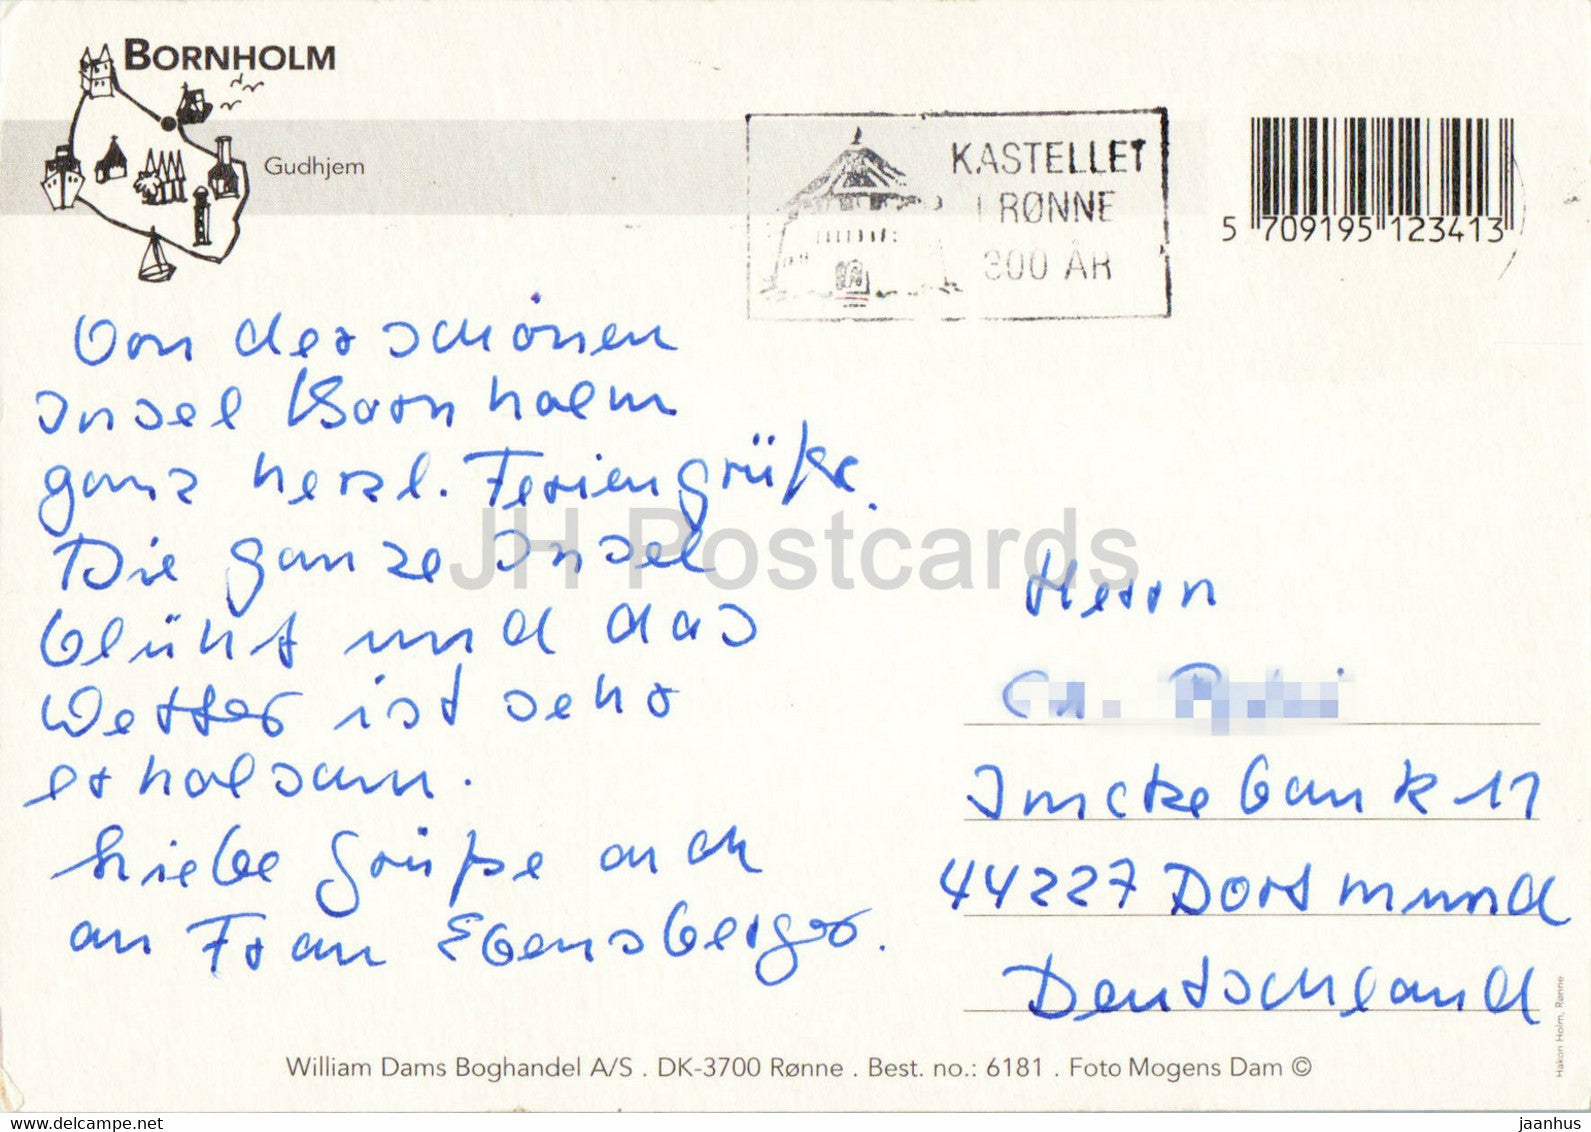 BORNHOLM
Gudhjem
KASTELLET
I RØNNE
300 ÅR
5 709195 123413
Von der schönen
Insel Bornholm
ganz herzl. Feriengrüße.
Die ganze Insel
blüht und das
Wetter ist sehr
erholsam.
Liebe Grüße auch
an Frau Ebensberger.
JH Postcards
Herrn
Imckebank 11
44227 Dortmund
Deutschland
Hakon Holm, Rønne
William Dams Boghandel A/S . DK-3700 Rønne . Best. no.: 6181 . Foto Mogens Dam ©
www.delcampe.net
jaanhus